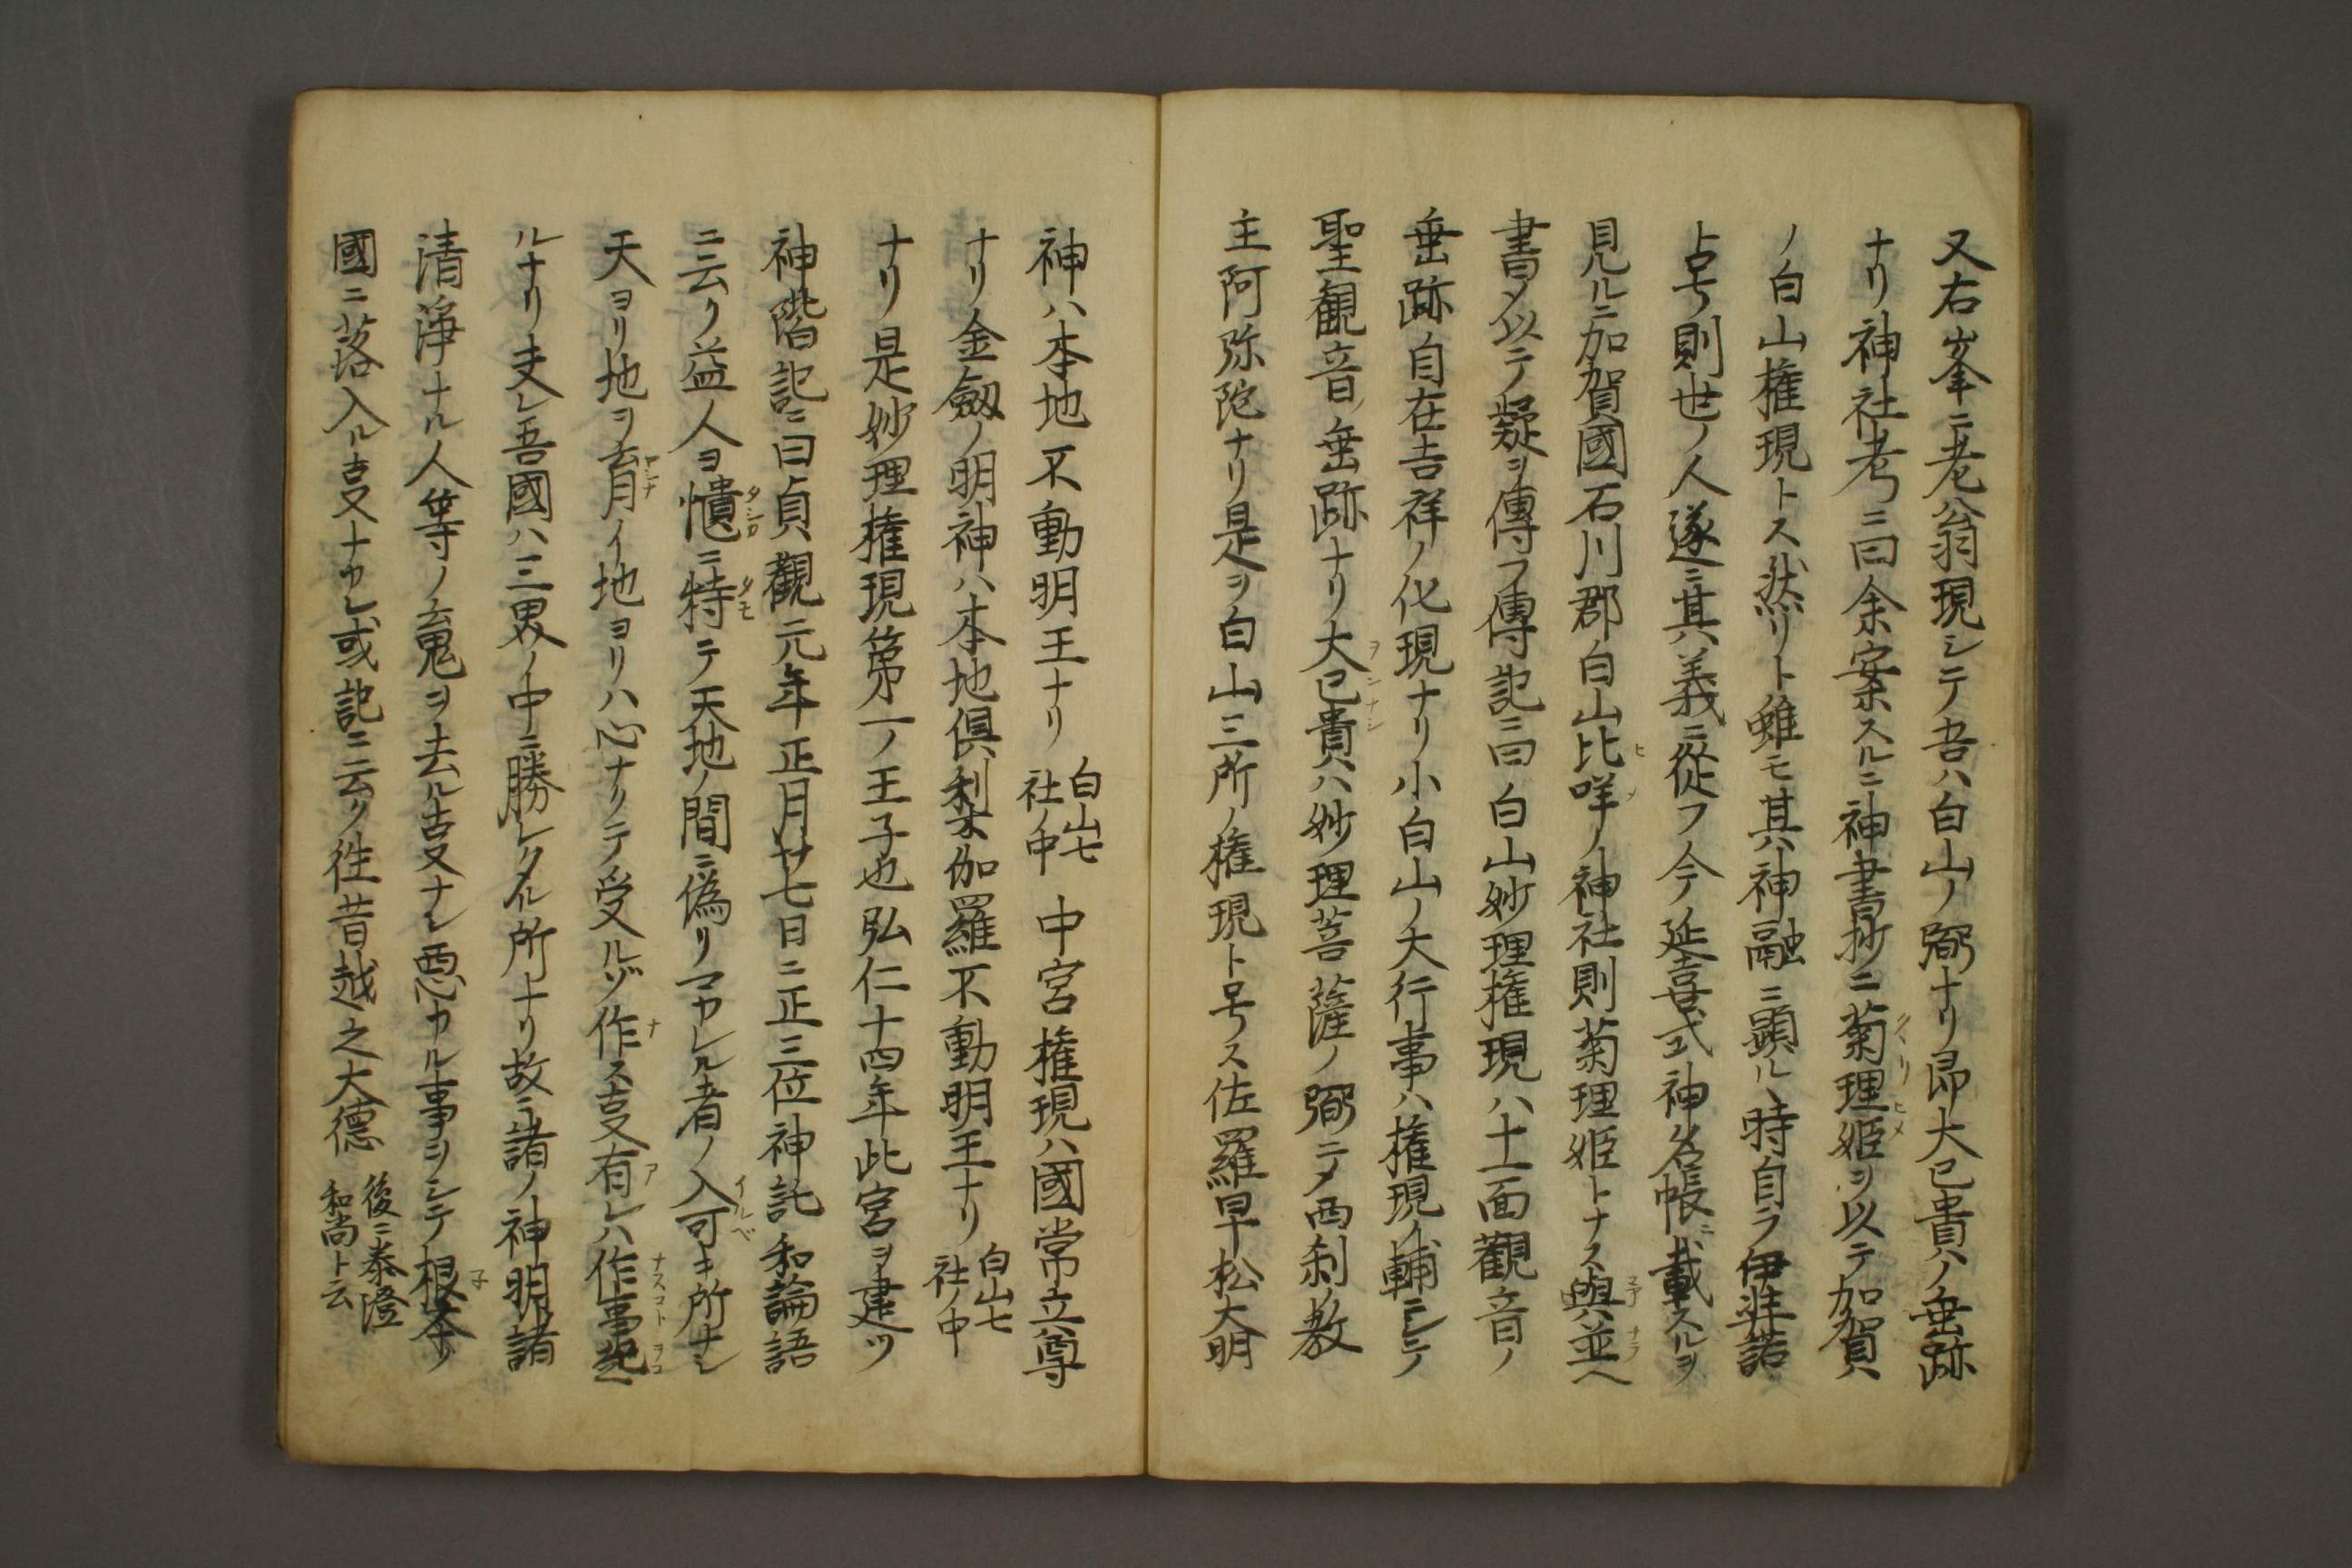 又右峯ニ老翁現シテ吾ハ白山ノ弼ナリ昂大已貴ハノ垂跡
ナリ神社考ニ曰余案スルニ神書抄ニ菊理姫ヲ以テ加賀
ノ白山権現トス然リト雖モ其神融ニ顕ル丶時自ラ伊弉諾
ト号則世ノ人遂ニ其義ニ從フ今テ延喜式神名帳ニ載スルヲ
見ルニ加賀國石川郡白山比咩ノ神社則菊理姫トナス與並ヘ
書〆以テ疑ヲ傳フ傳記ニ曰白山妙理権現ハ十一面觀音ノ
垂跡自在吉祥ノ化現ナリ小白山ノ大行事ハ権現ノ輔ニシテ
聖観音ノ垂跡ナリ大已貴ハ妙理菩薩ノ弼ニ〆西刹ノ教
主阿弥陀ナリ是ヲ白山三所ノ権現ト号ス佐羅早松大明
神ハ本地不動明王ナリ白山七社ノ中中宮権現ハ國常立尊
ナリ金劔ノ明神ハ本地倶利伽羅不動明王ナリ白山七社ノ中
ナリ是妙理権現第一ノ王子也弘仁十四年此宮ヲ建ツ
神階記ニ曰貞觀元年正月廿七日ニ正三位神託和論語
ニ云ク益人ヨ憒ニ特テ天地ノ間ニ偽リマカレル者ノ入可キ所ナシ
天ヨリ地ヲ育イ地ヨリハ心ナリテ受ルゾ作ス叓有レハ作事起
ルナリ夫レ吾國ハ三界ノ中ニ勝レタル所ナリ故ニ諸ノ神明諸
清淨ナル人等ノ去鬼ヲ去ル叓ナシ悪カル事ヲシテ根ノ
國ニ落入ル叓ナカレ或記ニ云ク徃昔越之大德後ニ泰澄和尚ト云